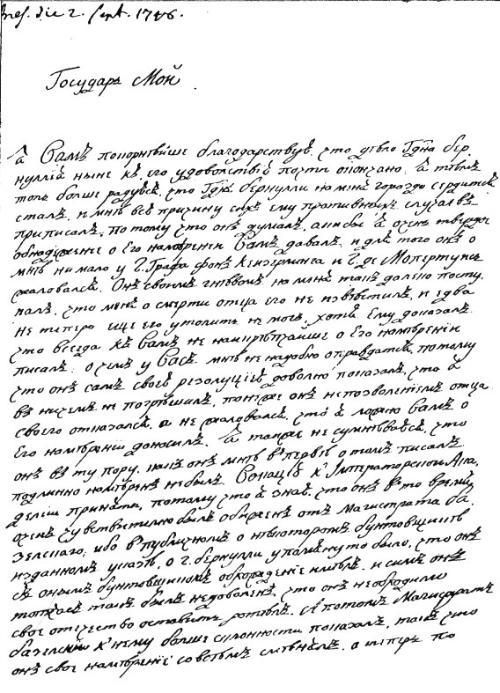 Prés. die 2. Sept. 1746.
Государь Мой
Я Вамъ покорнѣйше благодарствую, что дѣло Гдна Бер
нуллія ныне къ его удовольствію почти окончано. Я тѣмъ
толь больше радуюсь, что Гднъ Бернулли на меня гораздо сердитъ
сталъ, и мнѣ всѣ причину сихъ ему противныхъ случаевъ
приписалъ, потому что онъ думалъ, аки бы я очень твердое
обнадеженіе о его намѣреніи Вамъ давалъ, и для того онъ о
мнѣ не мало у Г. Графа фонъ Кейзерлинга и Г. де Мопертуи
жаловался. Онъ своимъ гнѣвомъ на меня такъ далеко посту
палъ, что меня о смерти отца его не извѣстилъ, и едва
не теперь еще его утолить не могъ, хотя ему доказалъ
что всегда къ Вамъ не наикрѣпчайше о его намѣреніи
писалъ: о чемъ у Васъ мнѣ не надобно оправдатся, потому
что онъ самъ своею резолуціею довольно показалъ, что я
въ ничемъ не погрѣшилъ, понеже онъ непозволеніемъ отца
своего отказался, а не жаловался, что я ложно Вамъ о
его намѣреніи доносилъ. Я также не сумнѣваюся, что
онъ въ ту пору, какъ онъ мнѣ впервые о томъ писалъ
подлинно намѣренъ былъ Вокацію къ Императорской Ака,
деміи принять, потому что я знаю, что онъ въ то время
очень чувствительно былъ обиженъ отъ Магистрата Ба,
зелскаго, ибо въ публичномъ о нѣкоторомъ бунтовщикѣ
изданномъ указѣ, о г. бернулли упамянуто было, что онъ
съ онымъ бунтовщикомъ обхожденіе имѣлъ, и симъ онъ
толь былъ недоволенъ, что онъ необходимо
свое отечество оставить хотѣлъ. А потомъ Магистратъ
базелскій къ нему больше склонности показалъ, такъ что
онъ свое намѣреніе совсѣмъ отмѣнилъ, а теперь по